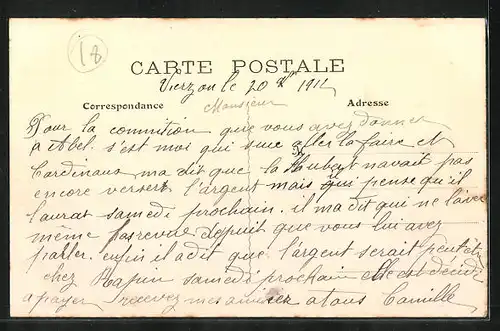 18
CARTE POSTALE
Vierzon le 20 1911
Correspondance Monsieur Adresse
Pour la commition que vous avez donner
a Abel. s'est moi qui suie aller la faire et
Cardinaux ma dit que la Hubert navait pas
encore verser l'argent mais qui pense qu'il
laurat samedi prochain. il ma dit qui ne l'avai
même pas revue depuit que vous lui avez
parler. enfin il a dit que l'argent serait peut etre
chez Hapin samedi prochain elle est décidé
a payer recevez mes amitier a tous Camille